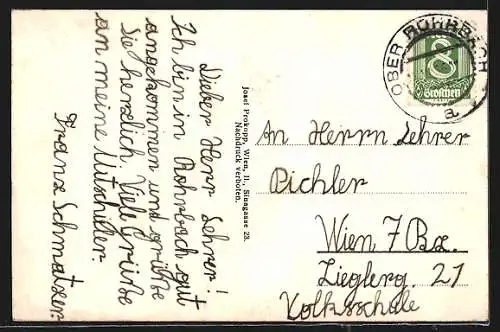 Lieber Herr Lehrer!
Ich bin in Rohrbach gut
angekommen und grüße
Sie herzlich. Viele Grüße
an meine Mitschüler.
Franz Schmatzer.
Josef Prokopp, Wien, II., Sinagasse 23.
Nachdruck verboten.
OBER ROHRBACH
a
8
Groschen
An Herrn Lehrer
Pichler
Wien 7 Bz.
Zieglerg. 21
Volksschule